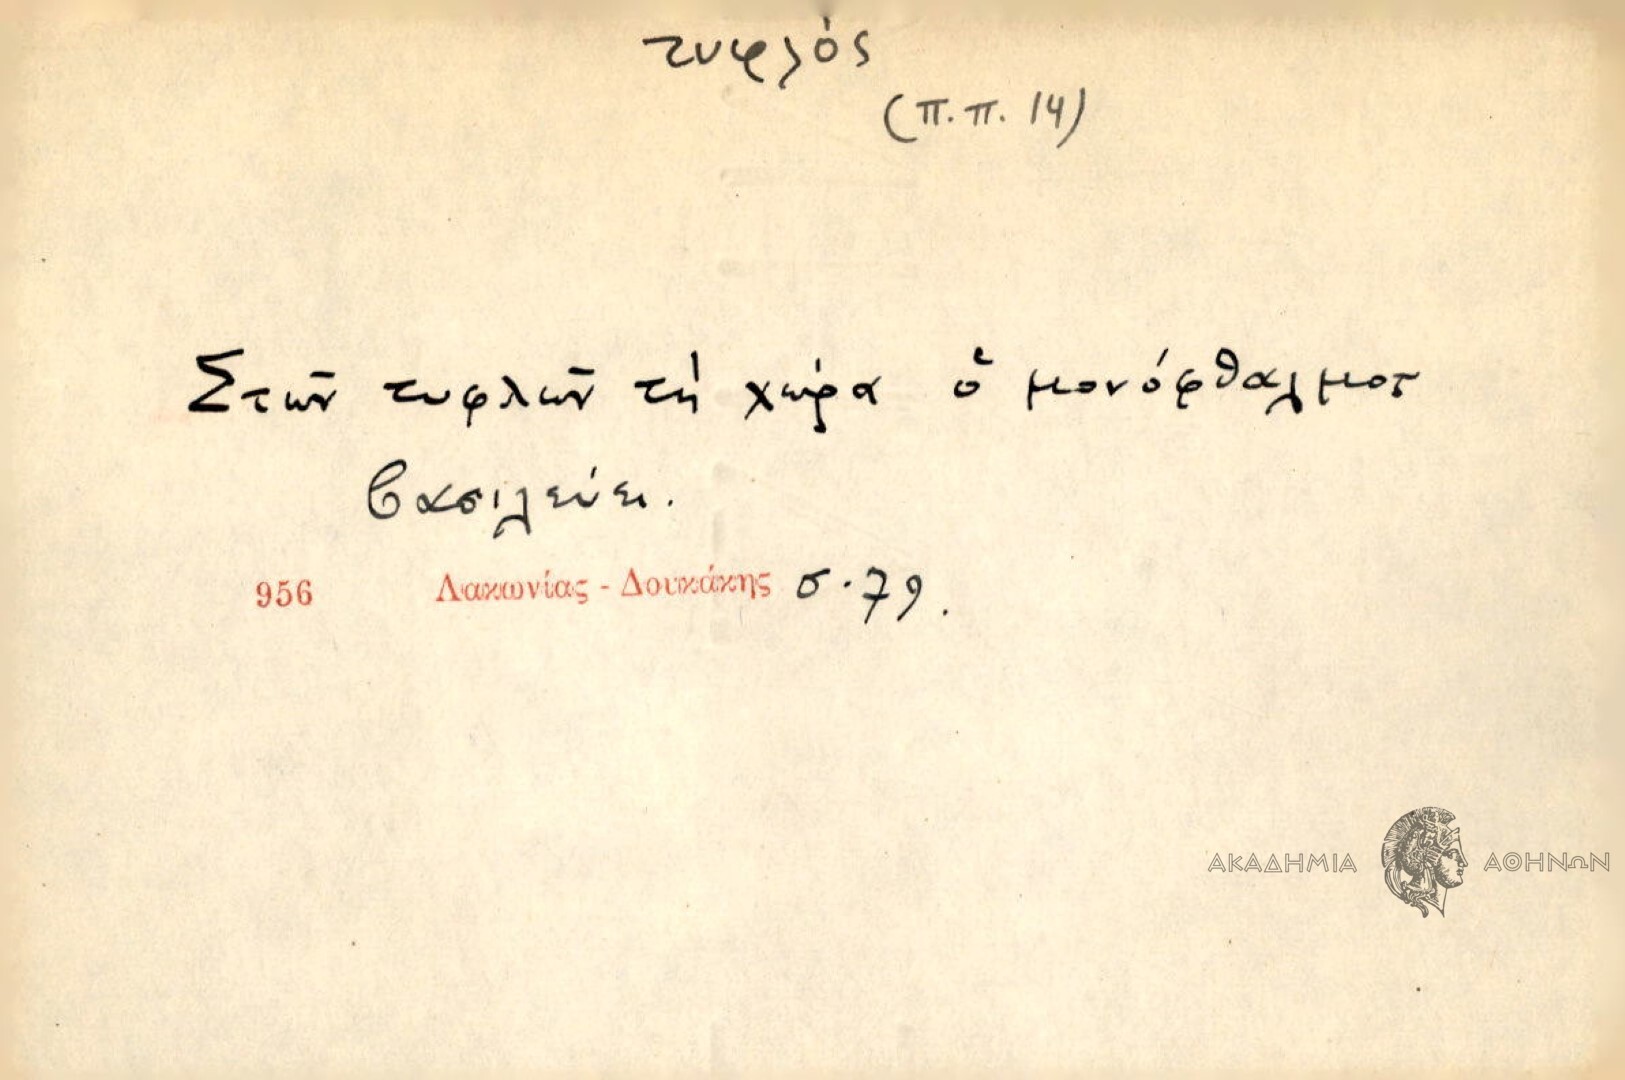 τυφλός
(π.π. 14)
Στῶν τυφλῶν τή χώρα ὁ μονόφθαλμος
βασιλεύει.
956 Λακωνίας - Δουκάκης σ. 79.
ΑΚΑΔΗΜΙΑ ΑΘΗΝΩΝ